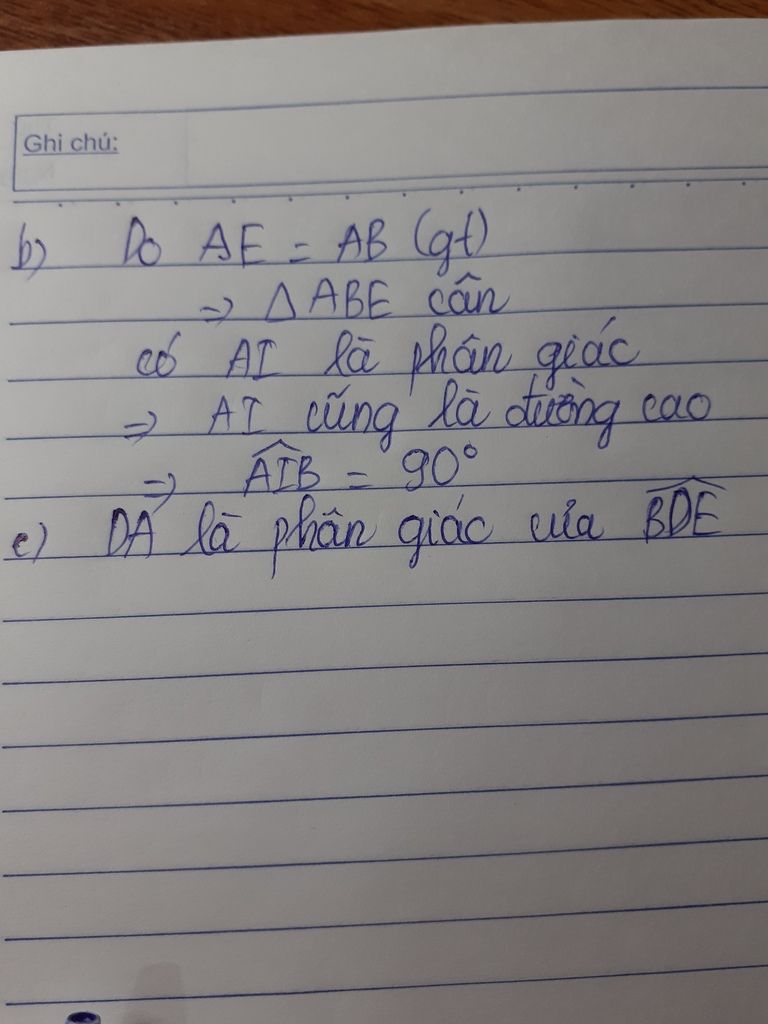 Ghi chú:
b) Do AE = AB (gt)
=> Δ ABE cân
có AI là phân giác
=> AI cũng là đường cao
=> \widehat{AIB} = 90°
c) DA là phân giác của \widehat{BDE}